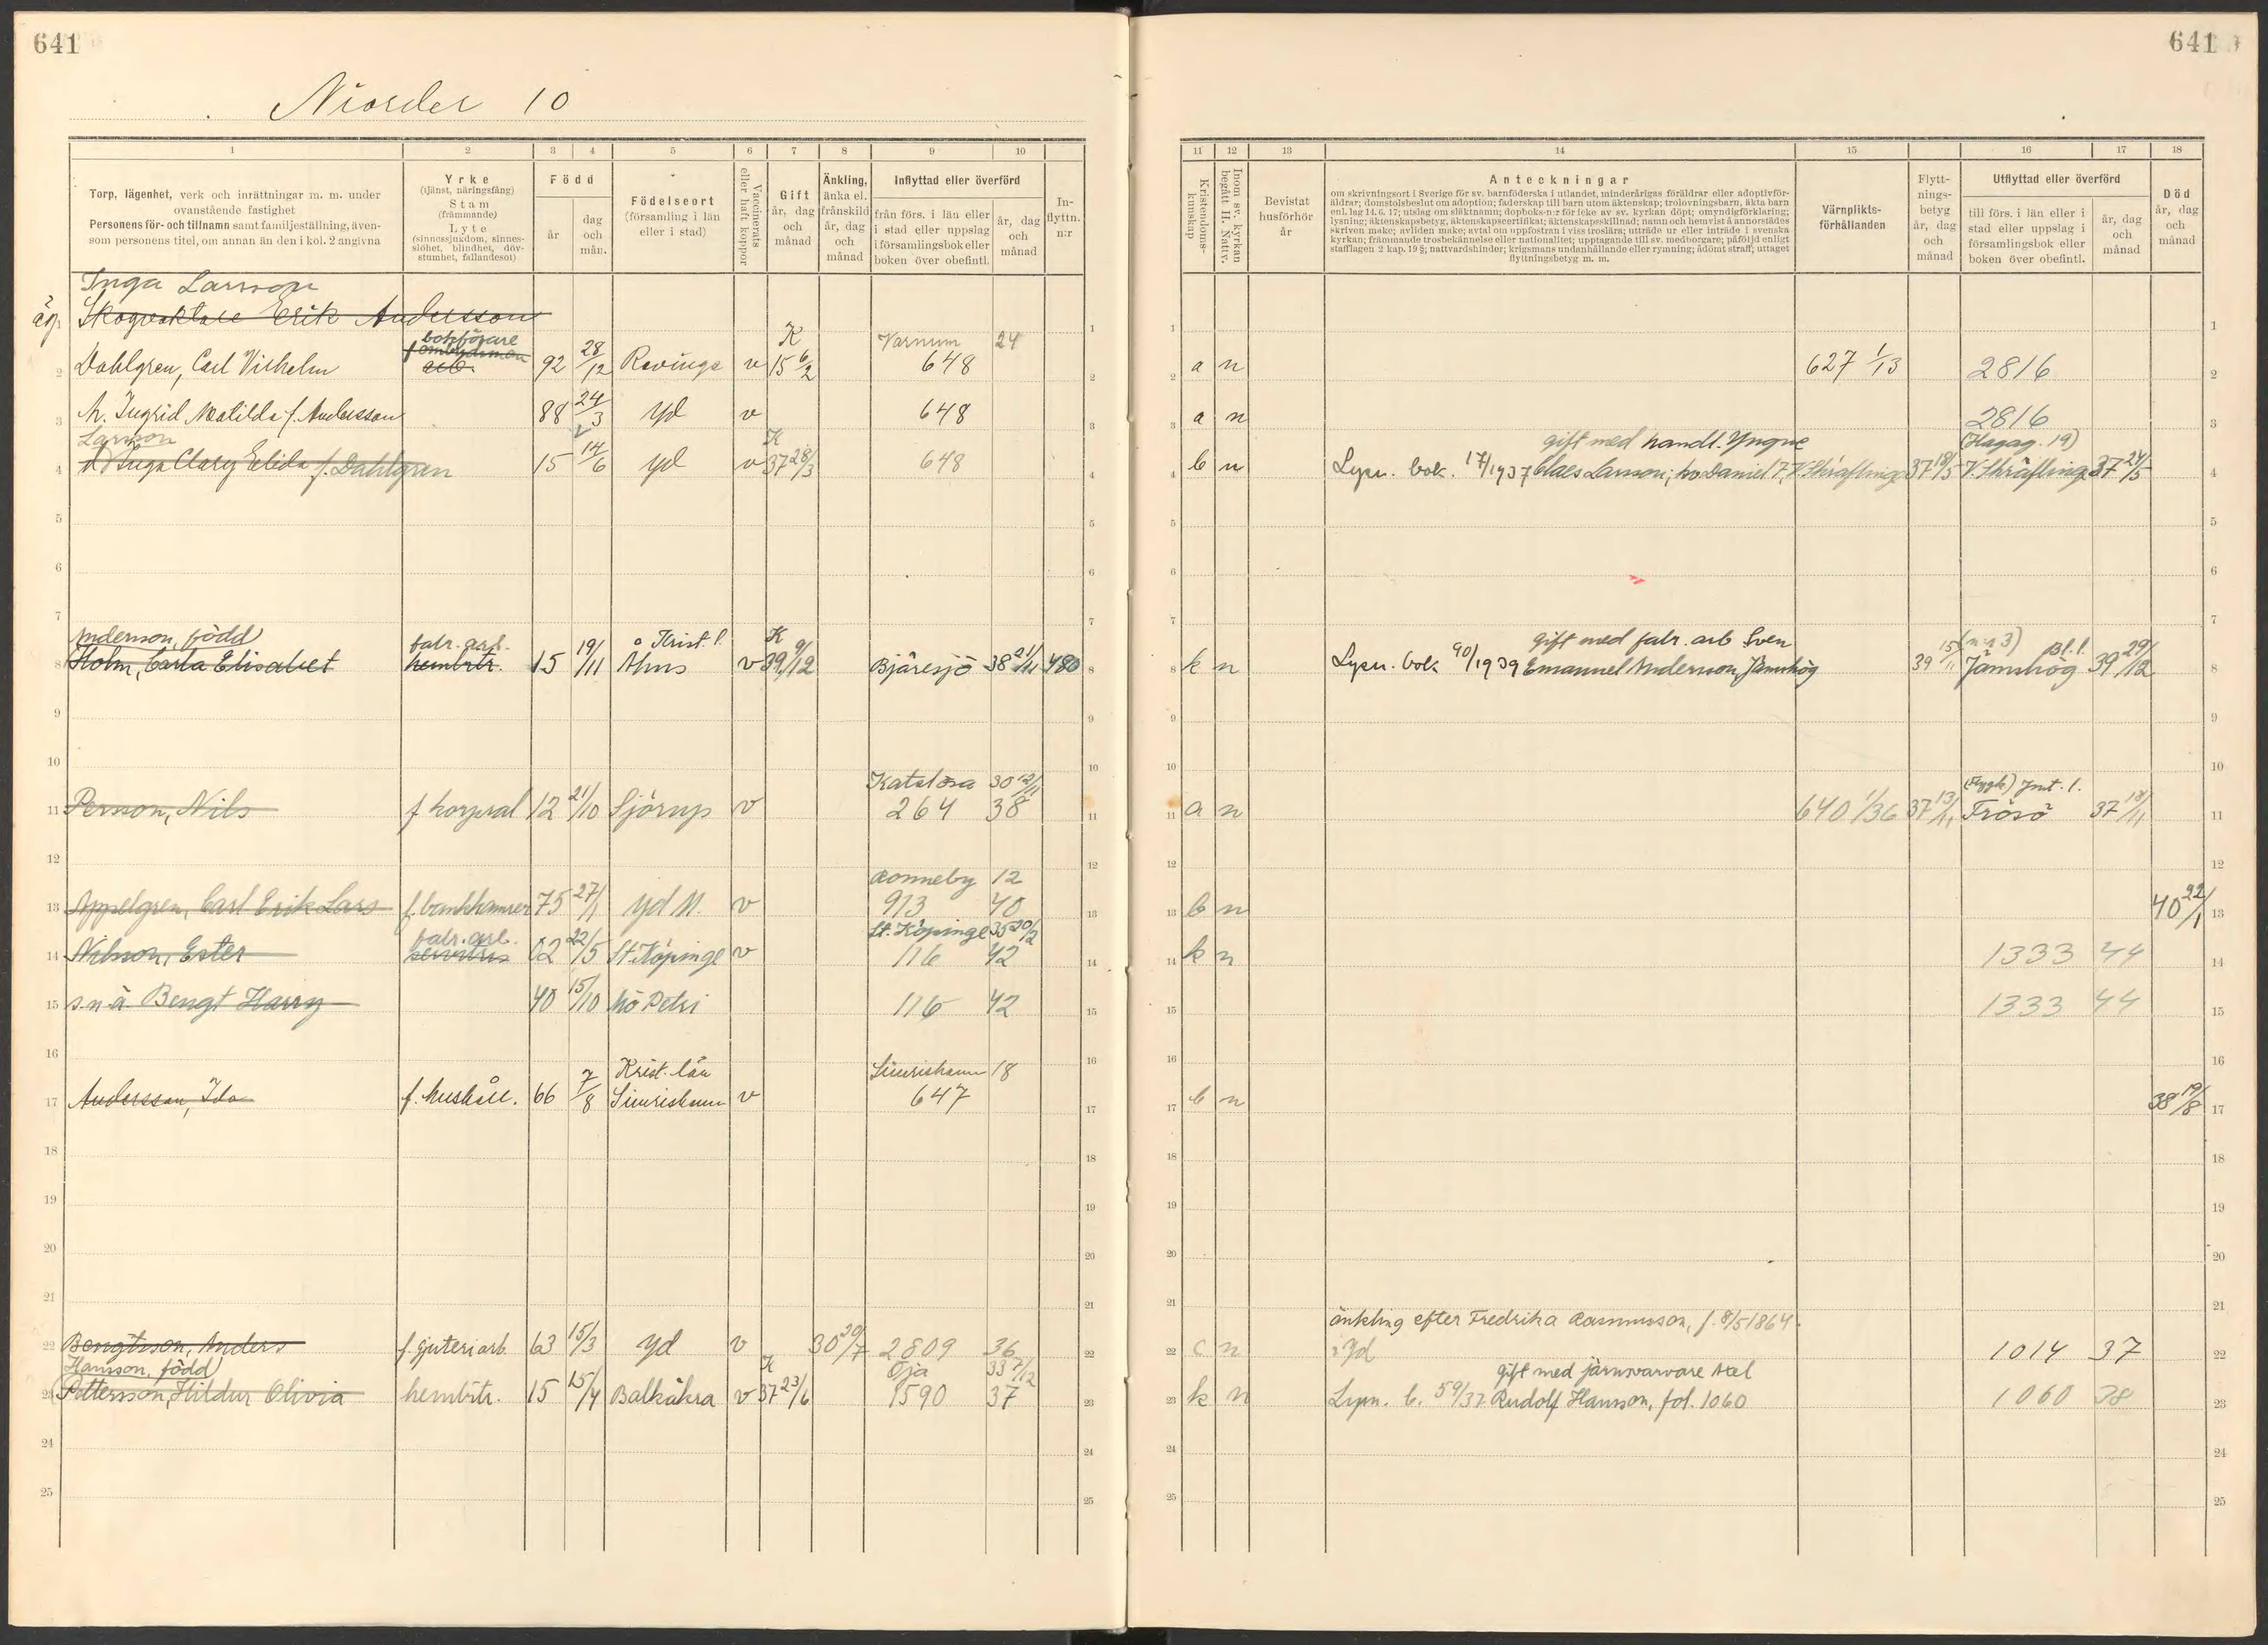 641
Niorder 10
1 2 3 4 5 6 7 8 9 10
Torp, lägenhet, verk och inrättningar m. m. under
ovanstående fastighet
Personens för- och tillnamn samt familjeställning, även-
som personens titel, om annan än den i kol. 2 angivna
Yrke
(tjänst, näringsfång)
Stam
(främmande)
Lyte
(sinnessjukdom, sinnes-
slöhet, blindhet, döv-
stumhet, fallandesot)
Född
år
dag
och
mån.
Födelseort
(församling i län
eller i stad)
Vaccinerats
eller haft koppor
Gift
år, dag
och
månad
Änkling,
änka el.
frånskild
år, dag
och
månad
Inflyttad eller överförd
från förs. i län eller
i stad eller uppslag
i församlingsbok eller
boken över obefintl.
år, dag
och
månad
In-
flyttn.
n:r
Inga Larsson
Skogvaktare Erik Andersson
bokförare K Varnum 24
f ombudsman
2 Dahlgren, Carl Vilhelm arb. 92 28/12 Revinge v 15 6/2 648
3 h. Ingrid Matilda f. Andersson 88 24/3 Yd v 648
Larsson K
4 d Inga Clary Elida f. Dahlgren 15 14/6 Yd v 37 28/3 648
5
6
7
Anderson, född fabr. arb. Krist. l. K
8 Holm, Carla Elisabet hembitr. 15 19/11 Åhus v 39 9/12 Bjäresjö 38 21/11 480
9
10
Katslösa 30 12/11
11 Persson, Nils f korpral 12 21/10 Sjörup v 264 38
12
Ronneby 12
13 Appelgren, Carl Erik Lars f. bankkamrer 75 27/1 Yd M. v 913 40
fabr. arb. St. Köpinge 35 20/12
14 Nilsson, Ester servitris 02 22/5 St. Köpinge v 116 42
15 s. u. ä. Bengt Harry 40 15/10 Mö Petri 116 42
16 Krist. län Simrishamn 18
17 Andersson, Ida f. hushåll. 66 7/8 Simrishamn v 647
18
19
20
21
22 Bengtsson, Anders f. gjuteriarb. 63 15/3 Yd v 30 20/7 2809 36
Hansson, född K Öja 33 7/12
23 Pettersson, Hildur Olivia hembitr. 15 15/4 Balkåkra v 37 23/6 1590 37
24
25
641
11 12 13 14 15 16 17 18
Kristendoms-
kunskap
Inom sv. kyrkan
begått H. Nattv.
Bevistat
husförhör
år
Anteckningar
om skrivningsort i Sverige för sv. barnföderska i utlandet, minderårigas föräldrar eller adoptivför-
äldrar; domstolsbeslut om adoption; faderskap till barn utom äktenskap; trolovningsbarn, äkta barn
enl. lag 14. 6. 17; utslag om släktnamn; dopboks-n:r för icke av sv. kyrkan döpt; omyndigförklaring;
lysning; äktenskapsbetyg, äktenskapscertifikat; äktenskapsskillnad; namn och hemvist å annorstädes
skriven make; avliden make; avtal om uppfostran i viss troslära; utträde ur eller inträde i svenska
kyrkan; främmande trosbekännelse eller nationalitet; upptagande till sv. medborgare; påföljd enligt
strafflagen 2 kap. 19 §; nattvardshinder; krigsmans undanhållande eller rymning; ådömt straff; uttaget
flyttningsbetyg m. m.
Värnplikts-
förhållanden
Flytt-
nings-
betyg
år, dag
och
månad
Utflyttad eller överförd
till förs. i län eller i
stad eller uppslag i
församlingsbok eller
boken över obefintl.
år, dag
och
månad
Död
år, dag
och
månad
1
2 a n 627 1/13 2816
3 a n 2816
gift med handl. Yngve (Hagag. 19)
4 b n Lysn. bok. 17/1937 Claes Larsson, V. Skräflinge 37 18/5 V. Skräflinge 37 24/5
5
6
7 gift med fabr. arb Sven Bl. l.
8 k n Lysn. bok 90/1939 Emanuel Anderson, Jämshög 39 15/11 Jämshög 39 29/12
9
10
Jmt. l.
11 a n 640 1/36 37 13/11 Frösö 37 18/11
12
13 b n 40 22/1
14 k n 1333 44
15 1333 44
16
17 b n 38 19/8
18
19
20
21
änkling efter Fredrika Rasmusson, f. 8/5 1864
22 c n i Yd 1014 37
gift med järnsvarvare Axel
23 k n Lysn. b. 59/37 Rudolf Hansson, fol. 1060 1060 38
24
25